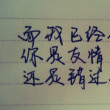 而我已经
你是友情
还是错过